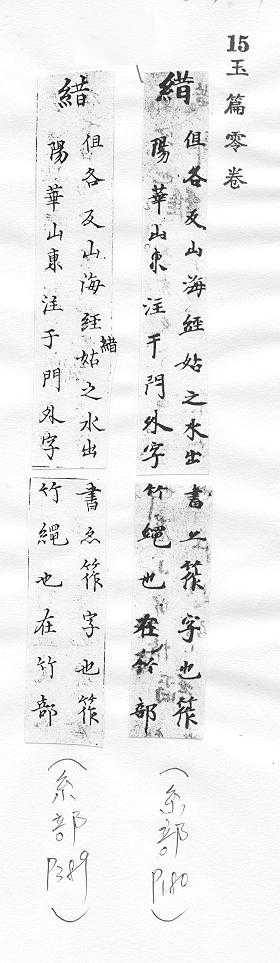 15 玉篇零卷
伹各反山海經姑之水出
陽華山東注于門外字
書筰字也筰
竹繩也在竹部
(糸部 P180)
伹各反山海經姑之水出
陽華山東注于門外字
書亦筰字也筰
竹繩也在竹部
(糸部 P389)